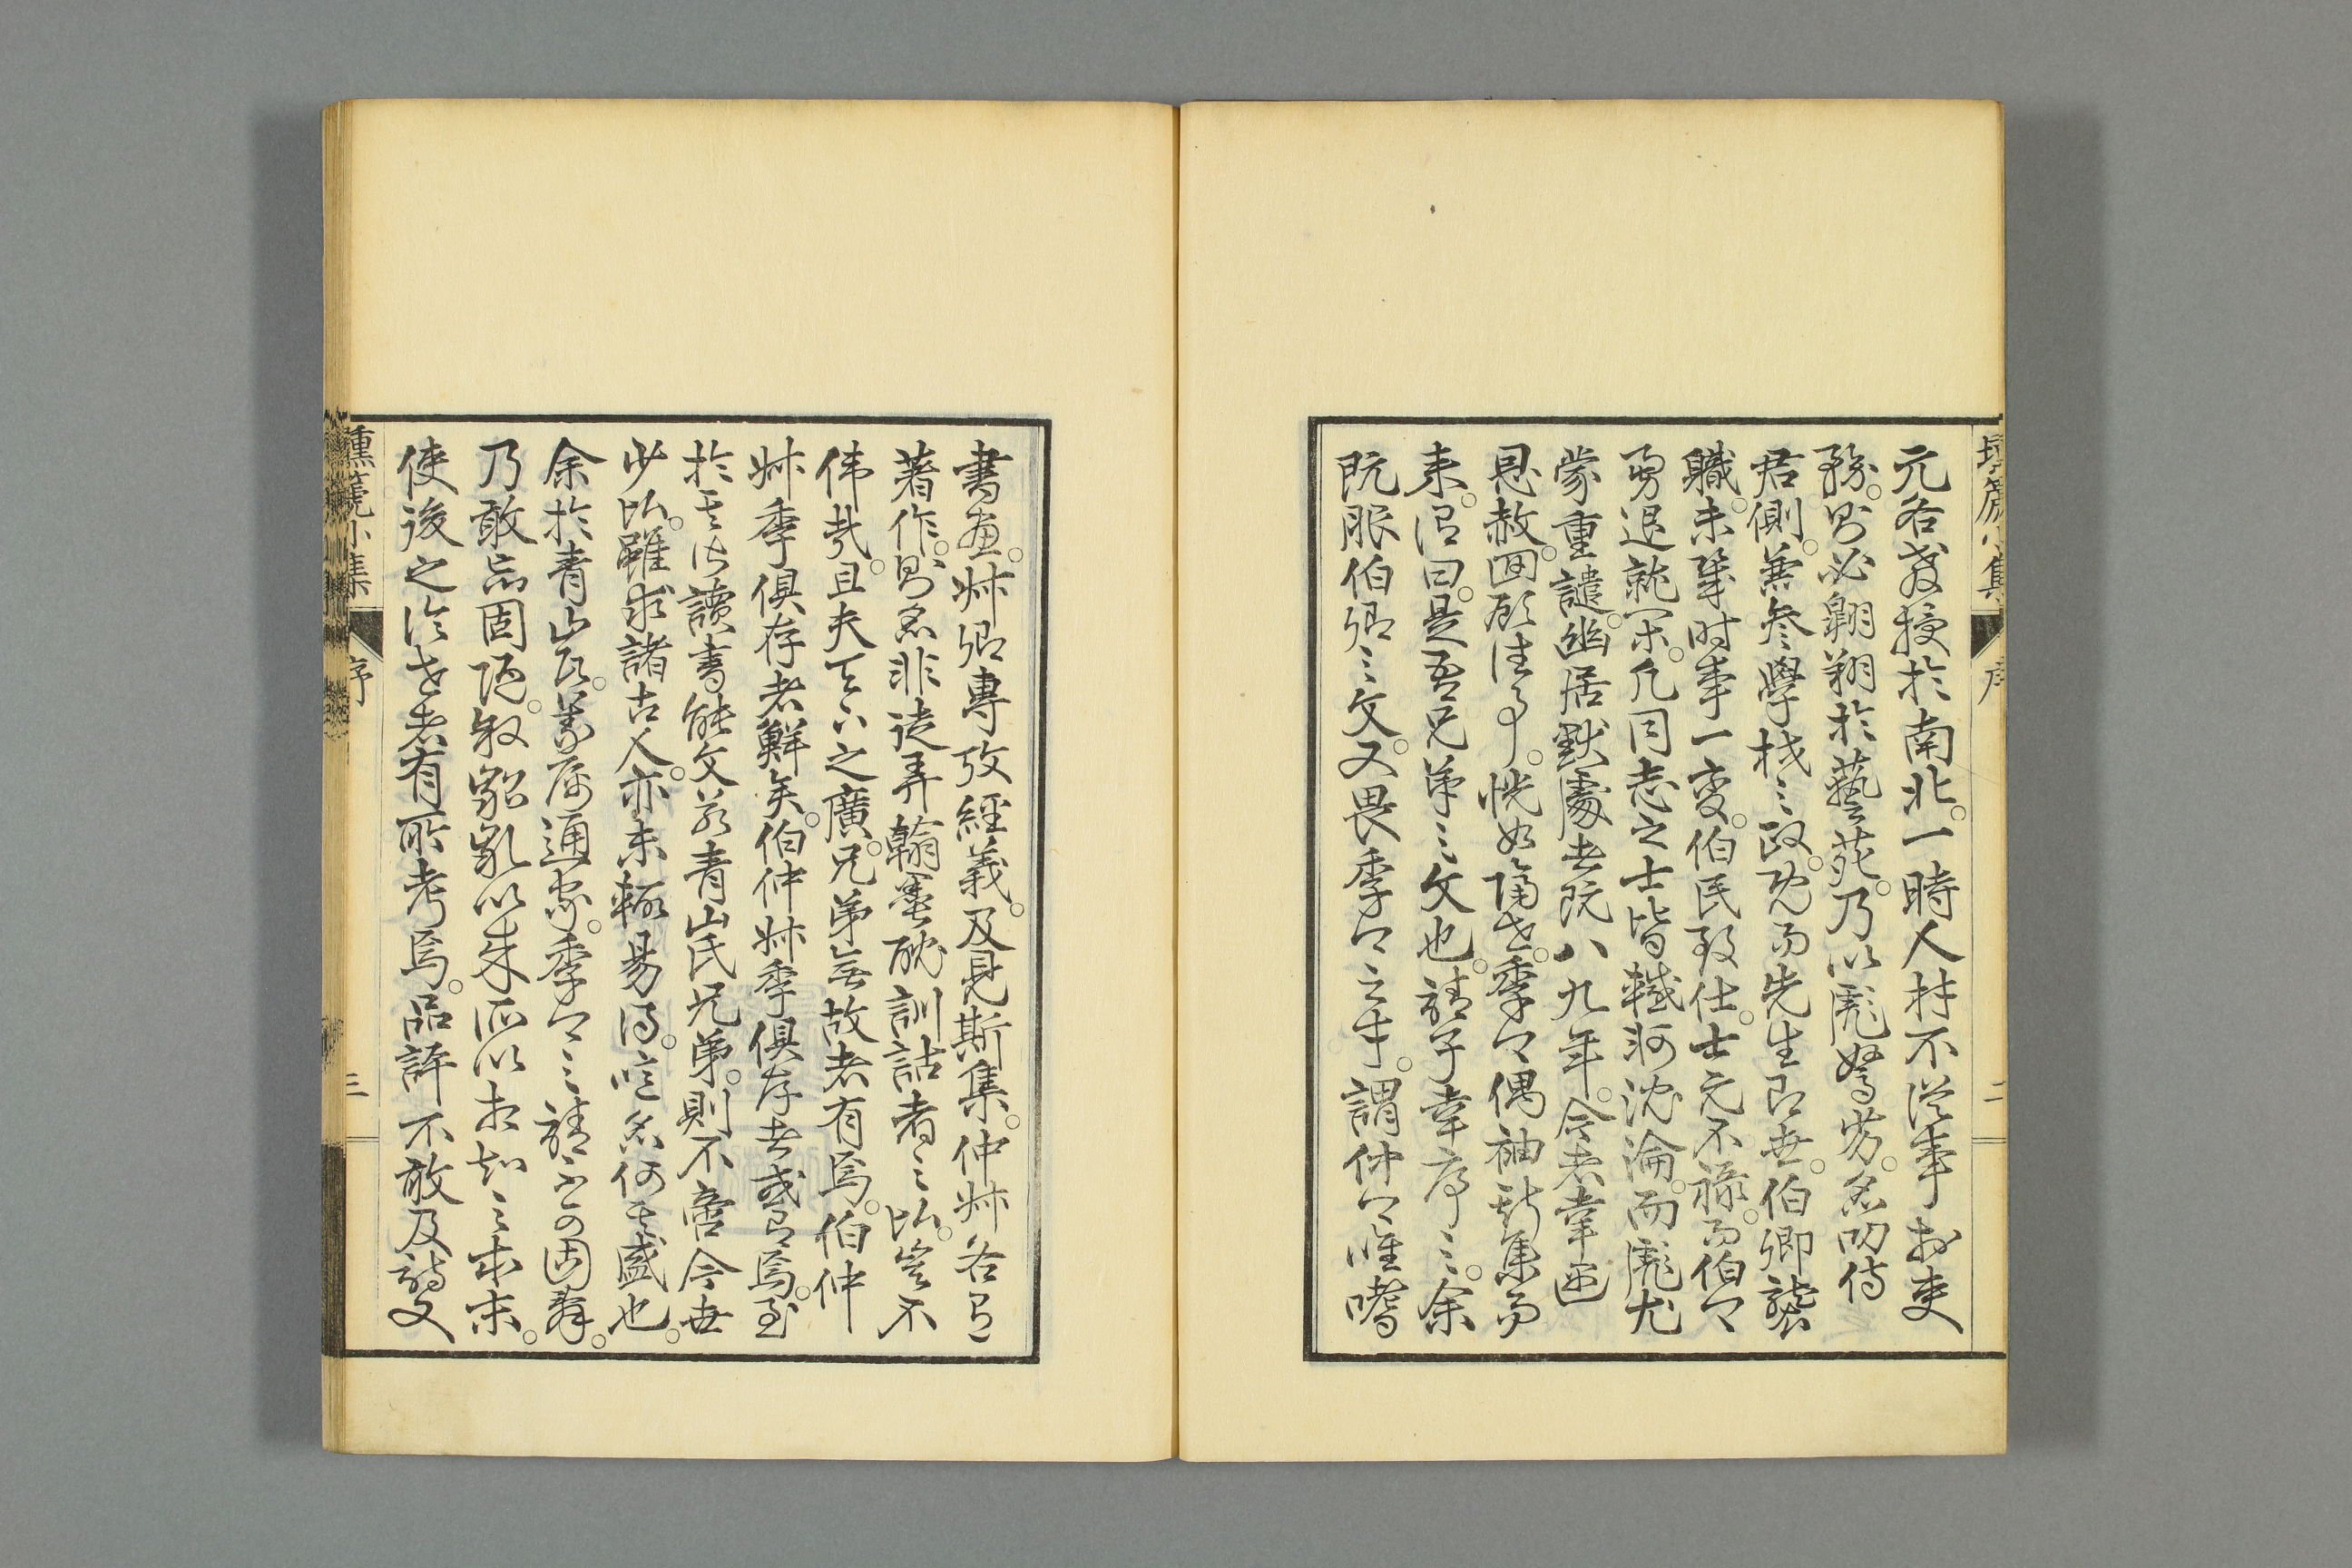 元各教授於南北。一時人材不從事於吏
務。則必翺翔於藝苑。乃以彪駑劣。名叨侍
君側。兼參學校之政。既而先生即世。伯卿襲
職。未幾時事一變。伯民致仕。士元不祿。而伯卿
勇退就閑。凡同志之士皆轗軻沈淪。而彪尤
蒙重譴。幽居默處者既八九年。今者幸遇
恩赦。回顧往事。恍如隔世。季卿偶袖新集而
來。謂曰。是吾兄弟之文也。請子幸序之。余
既服伯卿之文。又畏季卿之才。謂仲卿唯嗜
書畫。叔卿專攻經義。及見斯集。仲叔各有
著作。則知非徒弄翰墨耽訓詁者之比。豈不
偉哉。且夫天下之廣。兄弟無故者有焉。伯仲
叔季俱存者鮮矣。伯仲叔季俱存者或有焉。至
於其皆讀書能文若青山氏兄弟。則不啻今世
少比。雖求諸古人。亦未輒易得。嗚呼何其盛也。
余於青山氏。義屬通家。季卿之請不可固辭。
乃敢忘固陋。叙 以來所以相知之本末。
使後之論世者有所考焉。品評不敢及詩文
壎篪小集 序 二
壎篪小集 序 三